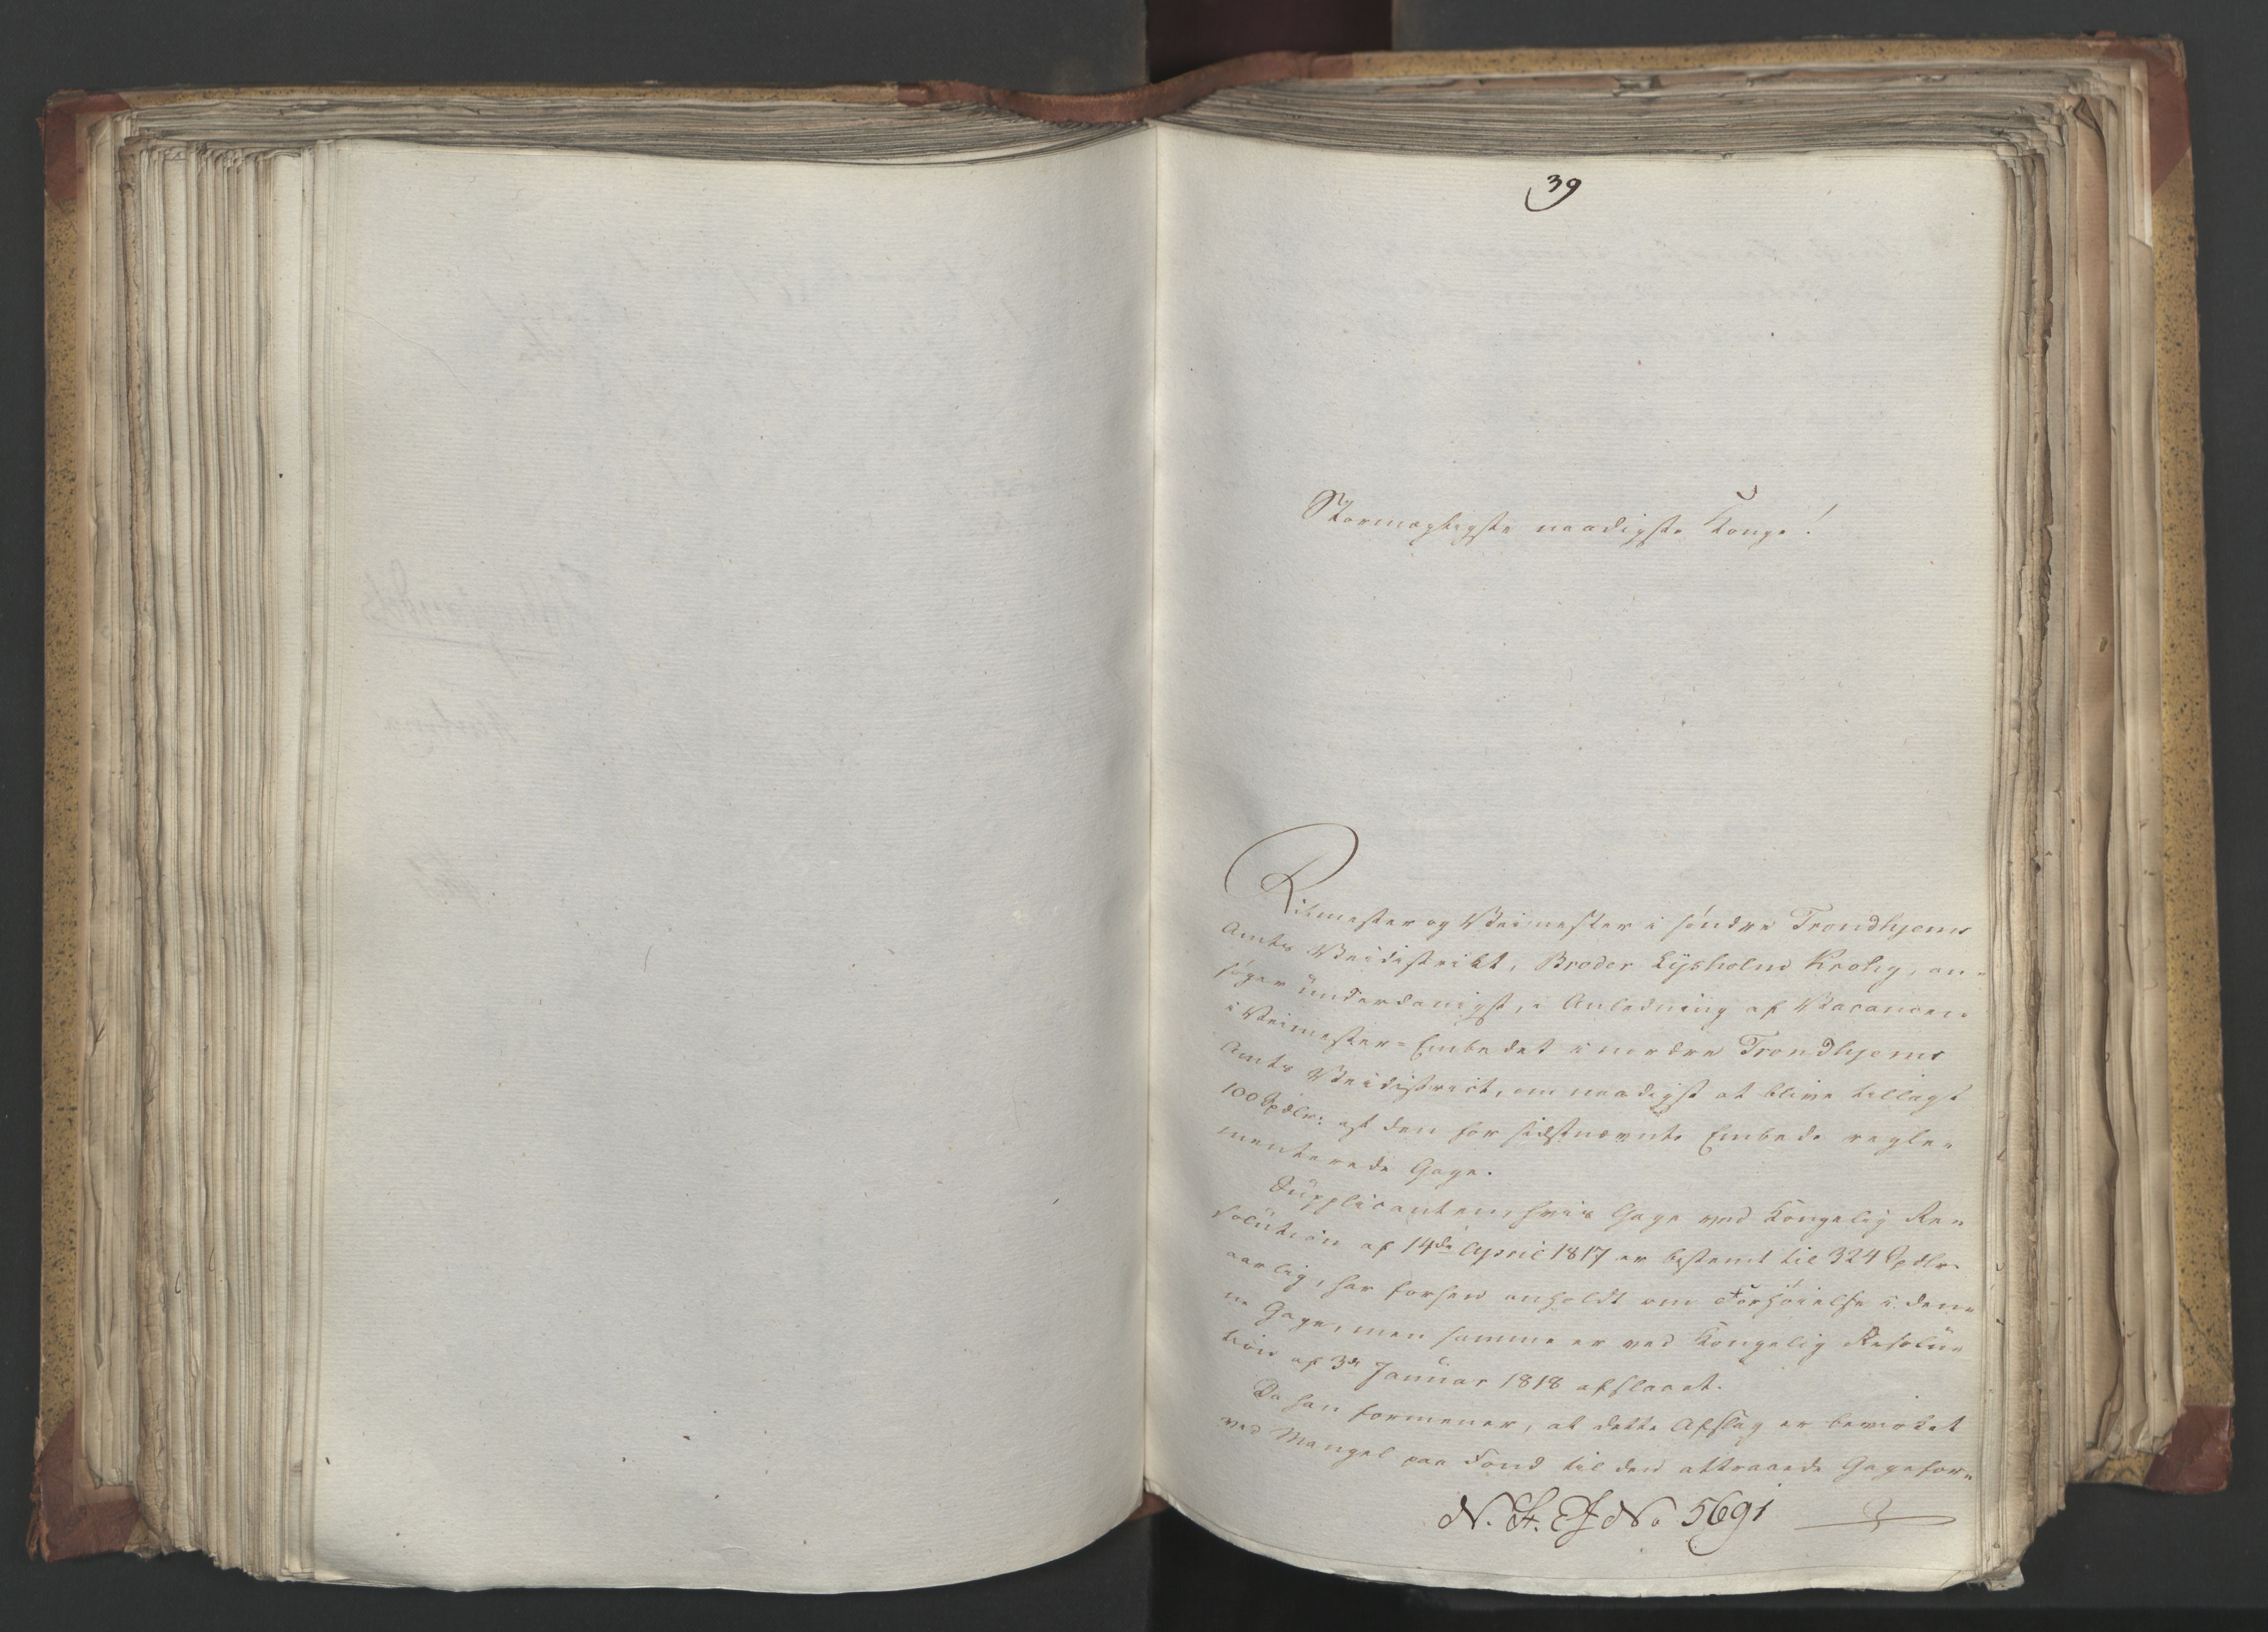 39
Stormægtigste naadigste Konge!
Ritmester og Veimester i søndre Trondhjems
Amts Veidistrikt, Broder Lysholm Krohg, an-
søger underdanigst, i Anledning af Vacancen
i Veimester-Embedet i nordre Trondhjems
Amts Veidistrict, om naadigst at blive tillagt
100 Spdlr: af den for sidstnævnte Embede regle-
menterede Gage.
Supplicanten, hvis Gage ved Kongelig Re-
solution af 14de April 1817 er bestemt til 324 Spdlr.
aarlig, har forhen anholdt om Forhøielse i den-
ne Gage, men samme er ved Kongelig Resolu-
tion af 3de Januar 1818 afslaaet.
Da han formener, at dette Afslag er bevirket
ved Mangel paa Fond til den attraaede Gagefor-
N. S. E J No 5691